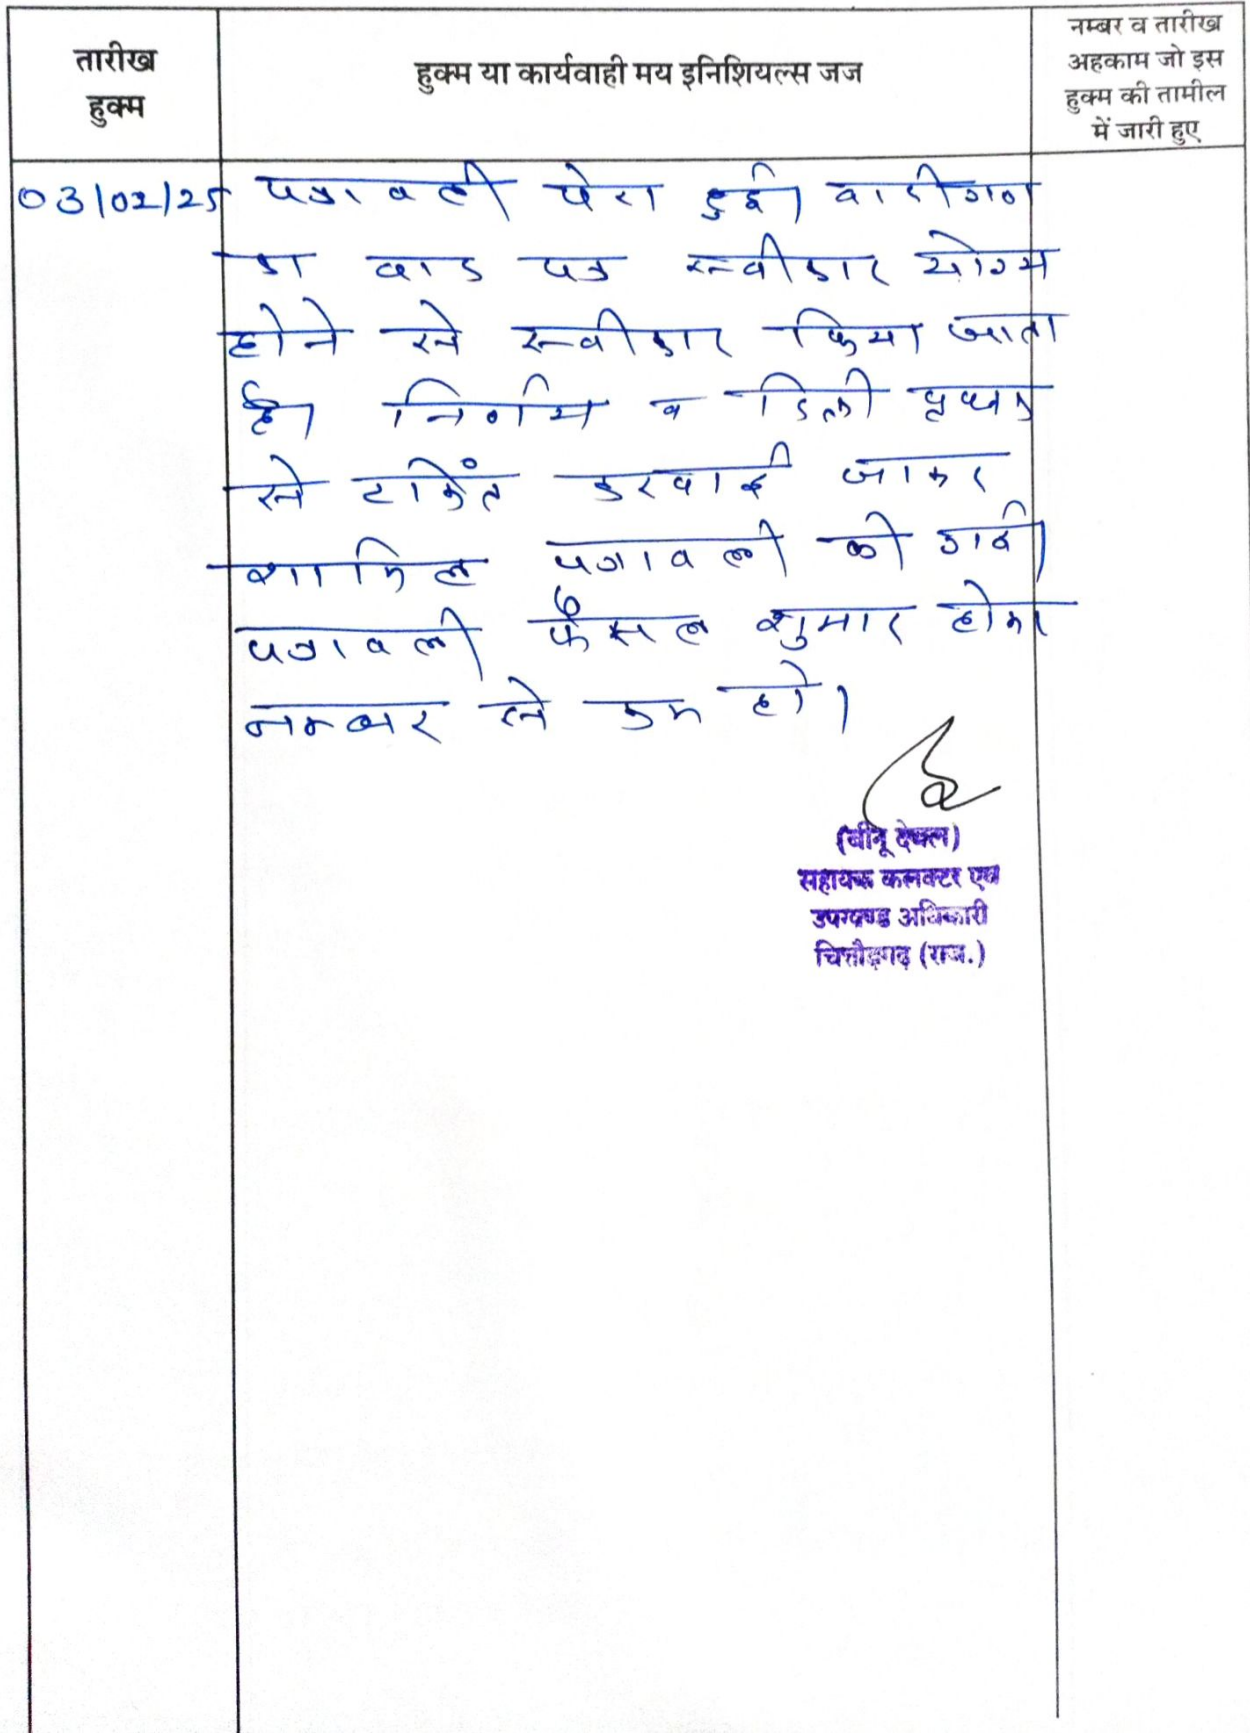 तारीख
हुक्म
हुक्म या कार्यवाही मय इनिशियल्स जज
नम्बर व तारीख
अहकाम जो इस
हुक्म की तामील
में जारी हुए
03/02/25 पत्रावली पेश हुई। वादीगण
का वाद पत्र स्वीकार योग्य
होने से स्वीकार किया जाता
है। निर्णय व डिक्री पृथक
से टंकित करवाई जाकर
शामिल पत्रावली की गई।
पत्रावली फैसल शुमार होकर
नम्बर से कम हो।
सहायक कलक्टर एवं
उपखण्ड अधिकारी
चित्तौड़गढ़ (राज.)